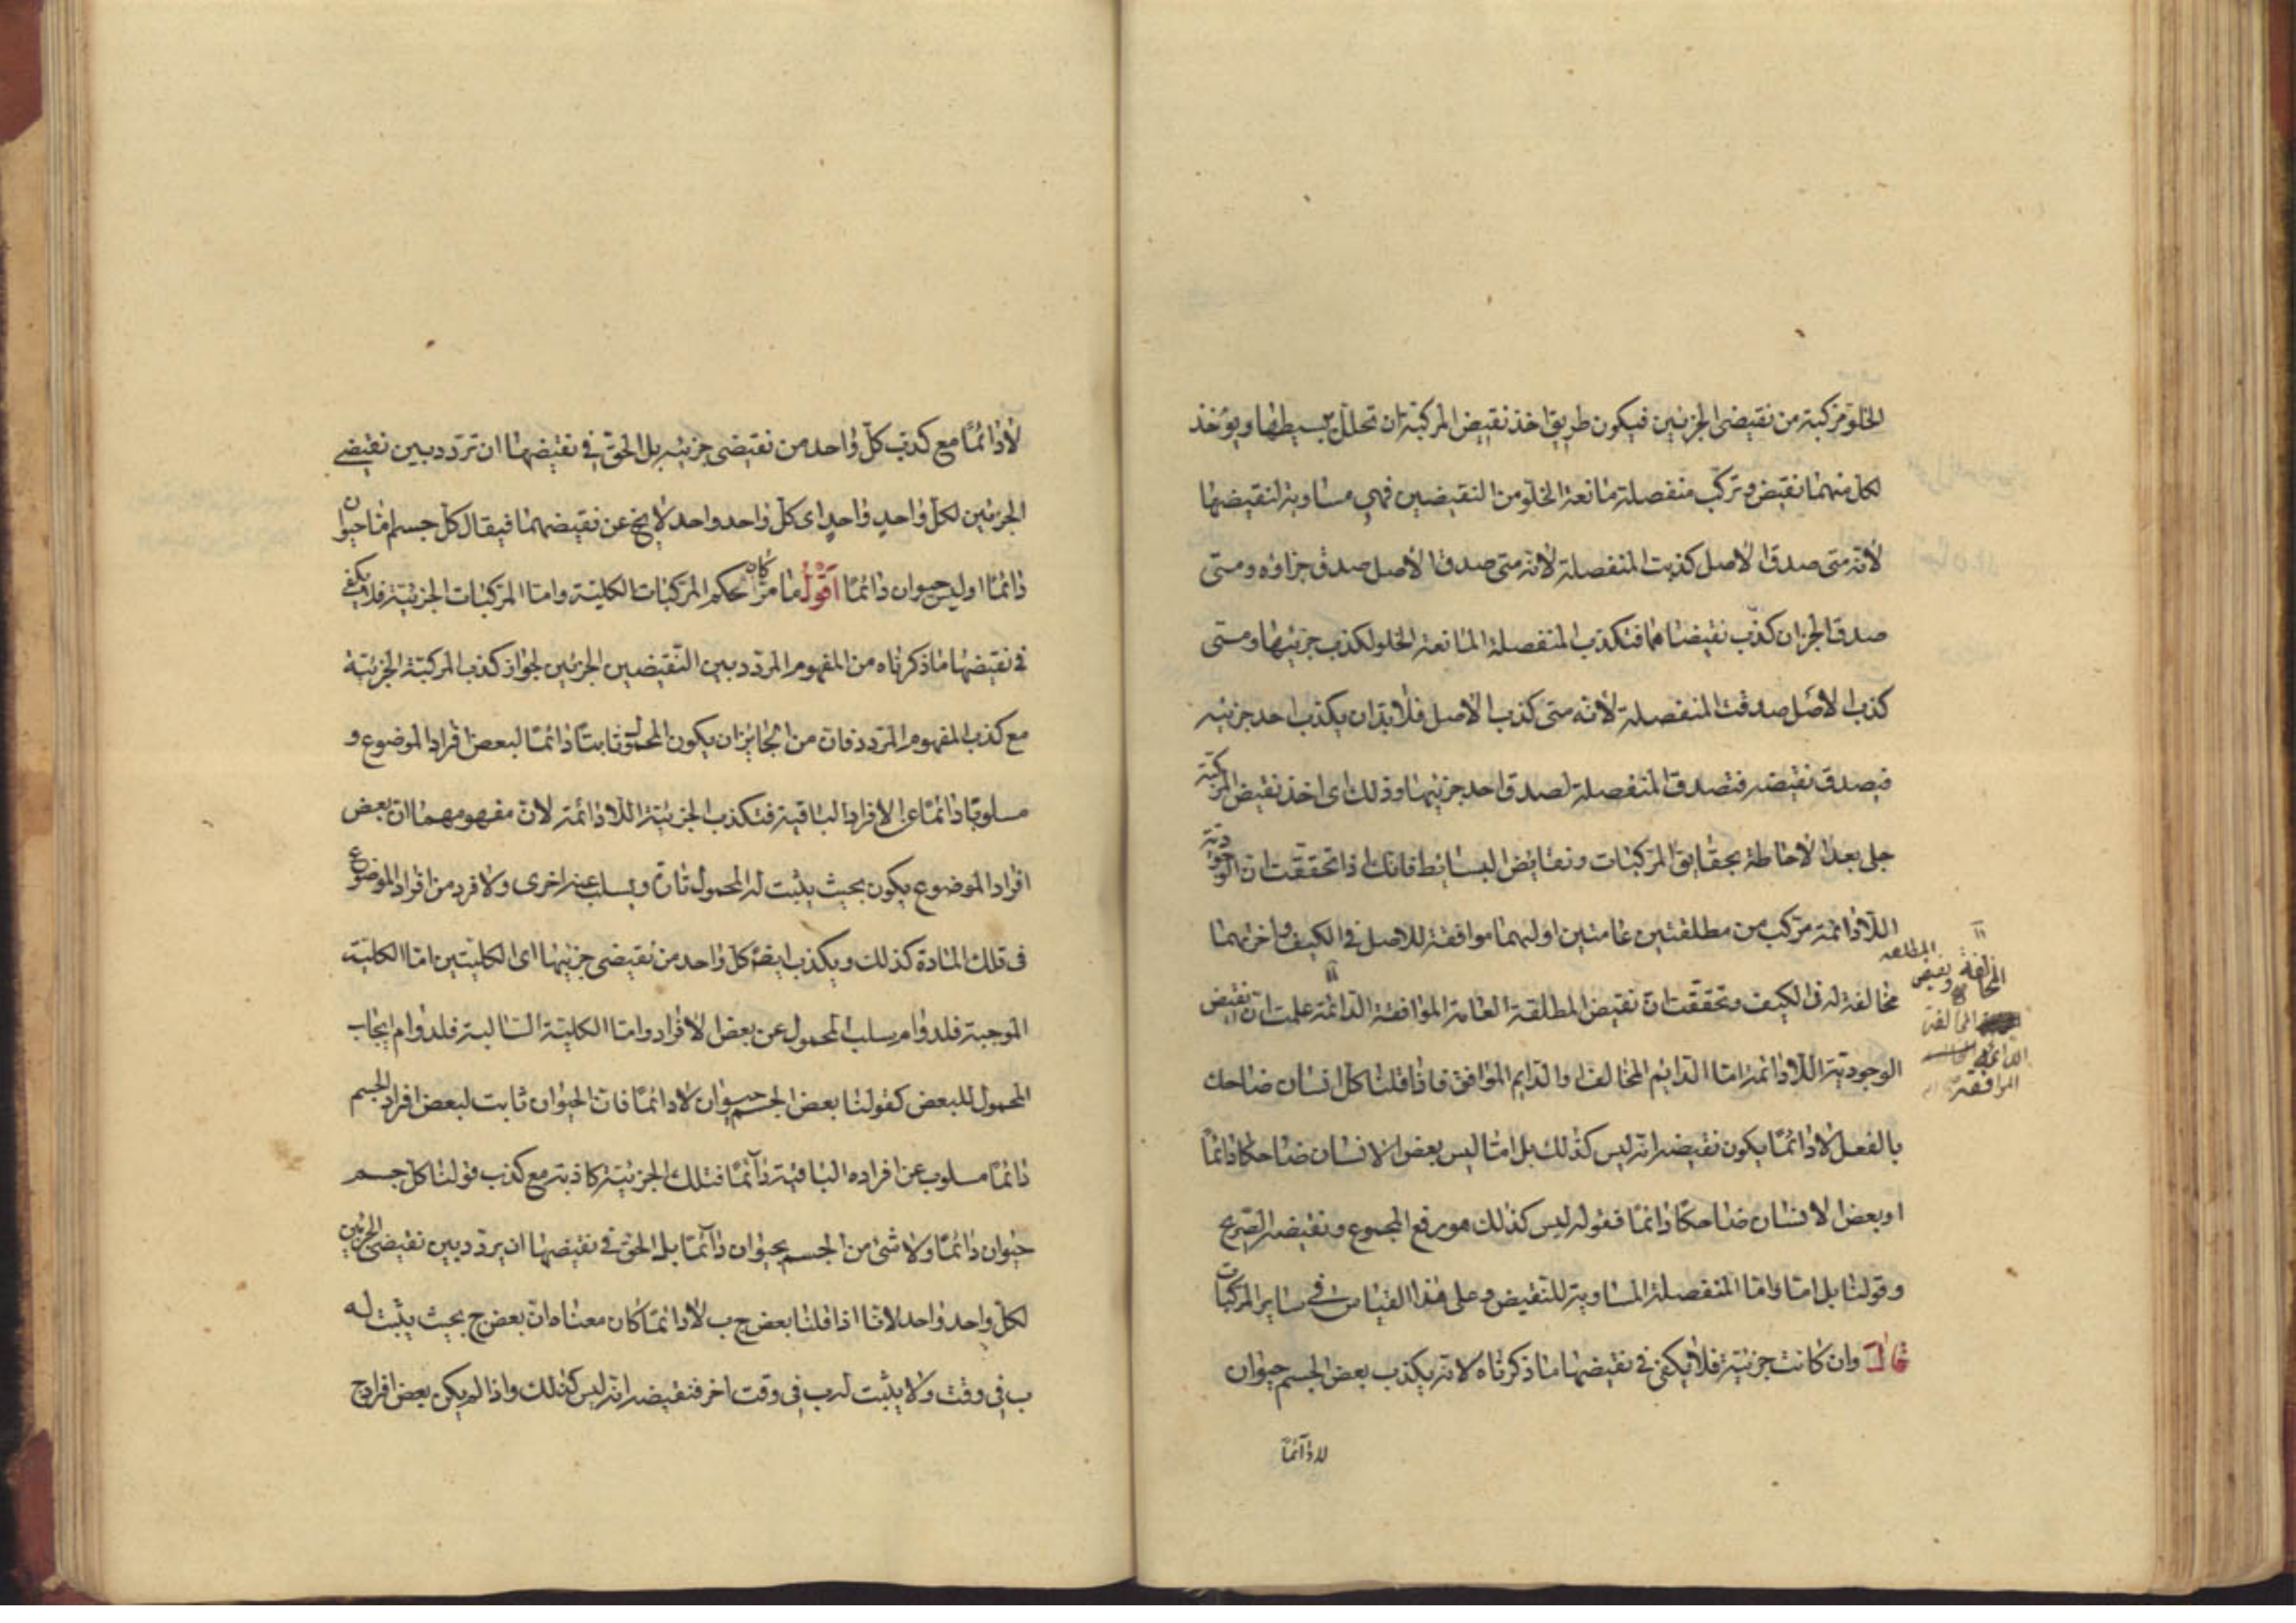 الخلو مركبة من نقيضى الجزئين فيكون طريق اخذ نقيض المركبة ان تحلل ببسيطها ويؤخذ
لكل منهما نقيض وتركب منفصلة مانعة الخلو من النقيضين فهى مساوية لنقيضها
لانه متى صدق الاصل كذبت المنفصلة لانه متى صدق الاصل صدق جزاؤه ومتى
صدق الجزان كذب نقيضاهما فتكذب المنفصلة المانعة الخلو لكذب جزئيها ومتى
كذب الاصل صدقت المنفصلة لانه متى كذب الاصل فلابد ان يكذب احد جزئيه
فيصدق نقيضه فتصدق المنفصلة لصدق احد جزئيها وذلك اى اخذ نقيض المركبة
جلى بعد الاحاطة بحقايق المركبات ونقايض البسائط فانك اذا تحققت ان الوجودية
اللادائمة مركب من مطلقتين عامتين اوليهما موافقة للاصل فى الكيف واخريهما
مخالفة له فى الكيف وتحققت ان نقيض المطلقة العامة الموافقة الدائمة علمت ان نقيض
المطلقة
المخالفة ونقيض
المخالفة
الدائمة
الموافقة
الوجودية اللادائمة اما الدائم المخالف او الدايم الموافق فاذا قلنا كل انسان ضاحك
بالفعل لا دائما يكون نقيضه انه ليس كذلك بل اما ليس بعض الانسان ضاحكا دائما
او بعض الانسان ضاحكا دائما فقوله ليس كذلك هو رفع المجموع ونقيضه الصريح
وقولنا بل اما واما المنفصلة المساوية للنقيض وعلى هذا القياس فى ساير المركبات
قال وان كانت جزئية فلا يكفى فى نقيضها ما ذكرناه لانه يكذب بعض الجسم حيوان
لا دائما
لا دائما مع كذب كل واحد من نقيضى جزئيه بل الحق فى نقيضها ان تردد بين نقيضى
الجزئين لكل واحد واحد اى كل واحد واحد لا يخ عن نقيضهما فيقال كل جسم اما حيوان
دائما او ليس حيوان دائما اقول ما مر كان حكم المركبات الكلية واما المركبات الجزئية فلا يكفى
فى نقيضها ما ذكرناه من المفهوم المردد بين النقيضين الجزئين لجواز كذب المركبة الجزئية
مع كذب المفهوم المردد فان من الجايز ان يكون المحمول ثابتا دائما لبعض افراد الموضوع و
مسلوبا دائما عن الافراد الباقية فتكذب الجزئية اللادائمة لان مفهومهما ان بعض
افراد الموضوع يكون بحيث يثبت له المحمول تارة ويسلب عنه اخرى ولا فرد من افراد الموضوع
فى تلك المادة كذلك ويكذب ايضا كل واحد من نقيضى جزئيها اى الكليتين اما الكلية
الموجبة فلدوام سلب المحمول عن بعض الافراد واما الكلية السالبة فلدوام ايجاب
المحمول للبعض كقولنا بعض الجسم حيوان لا دائما فان الحيوان ثابت لبعض افراد الجسم
دائما مسلوب عن افراده الباقية دآئما فتلك الجزئية كاذبة مع كذب قولنا كل جسم
حيوان دائما ولا شئ من الجسم بحيوان دآئما بل الحق فى نقيضها ان يردد بين نقيضى الجزئين
لكل واحد واحد لانا اذا قلنا بعض ج ب لا دائما كان معناه ان بعض ج بحيث يثبت له
ب فى وقت ولا يثبت له ب فى وقت اخر فنقيضه انه ليس كذلك واذا لم يكن بعض افراد ج